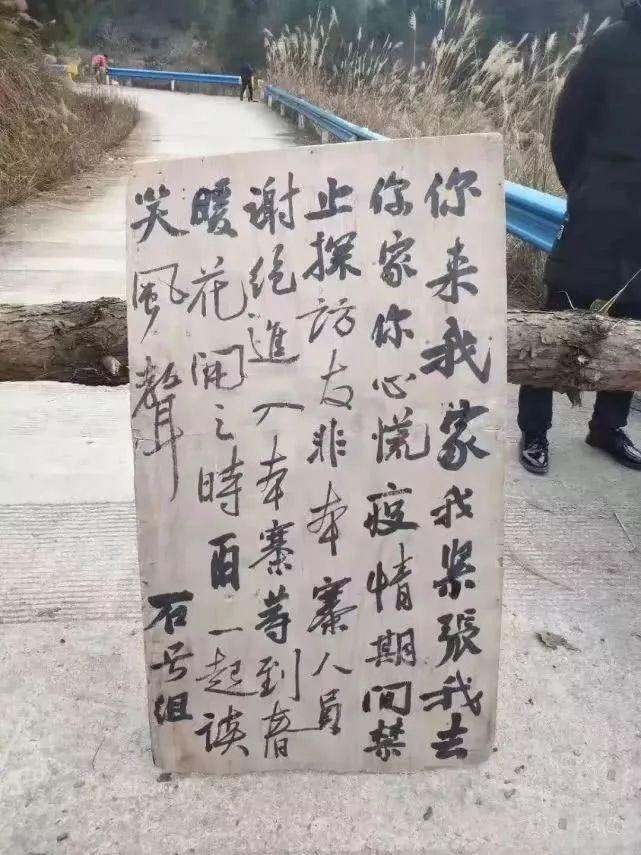 你来我家我紧張我去
你家你心慌疫情期间禁
止探访友非本寨人员
谢绝進入本寨等到春
暖花開之時百一起谈
笑風聲
石号组